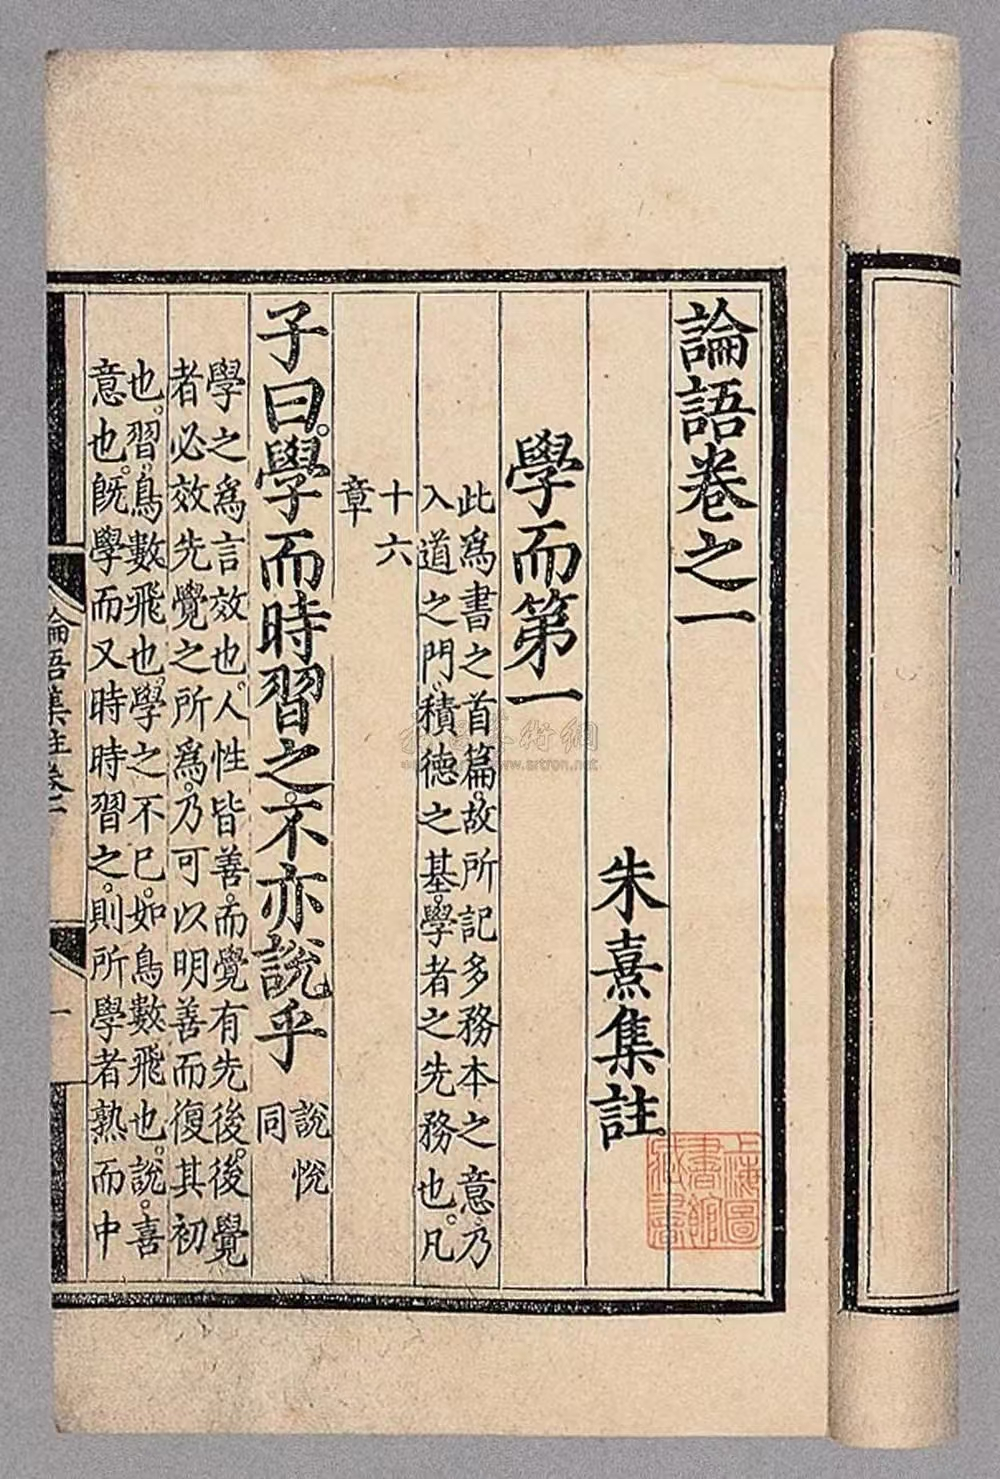 論語卷之一
朱熹集註
學而第一
此爲書之首篇。故所記多務本之意。乃
入道之門。積德之基。學者之先務也。凡
十六
章
子曰。學而時習之。不亦說乎
說悅
同
學之爲言效也。人性皆善。而覺有先後。後覺
者必效先覺之所爲。乃可以明善而復其初
也。習。鳥數飛也。學之不已。如鳥數飛也。說。喜
意也。旣學而又時時習之。則所學者熟而中
論語集註卷一
一
上海圖
書館
藏書
www.artron.net